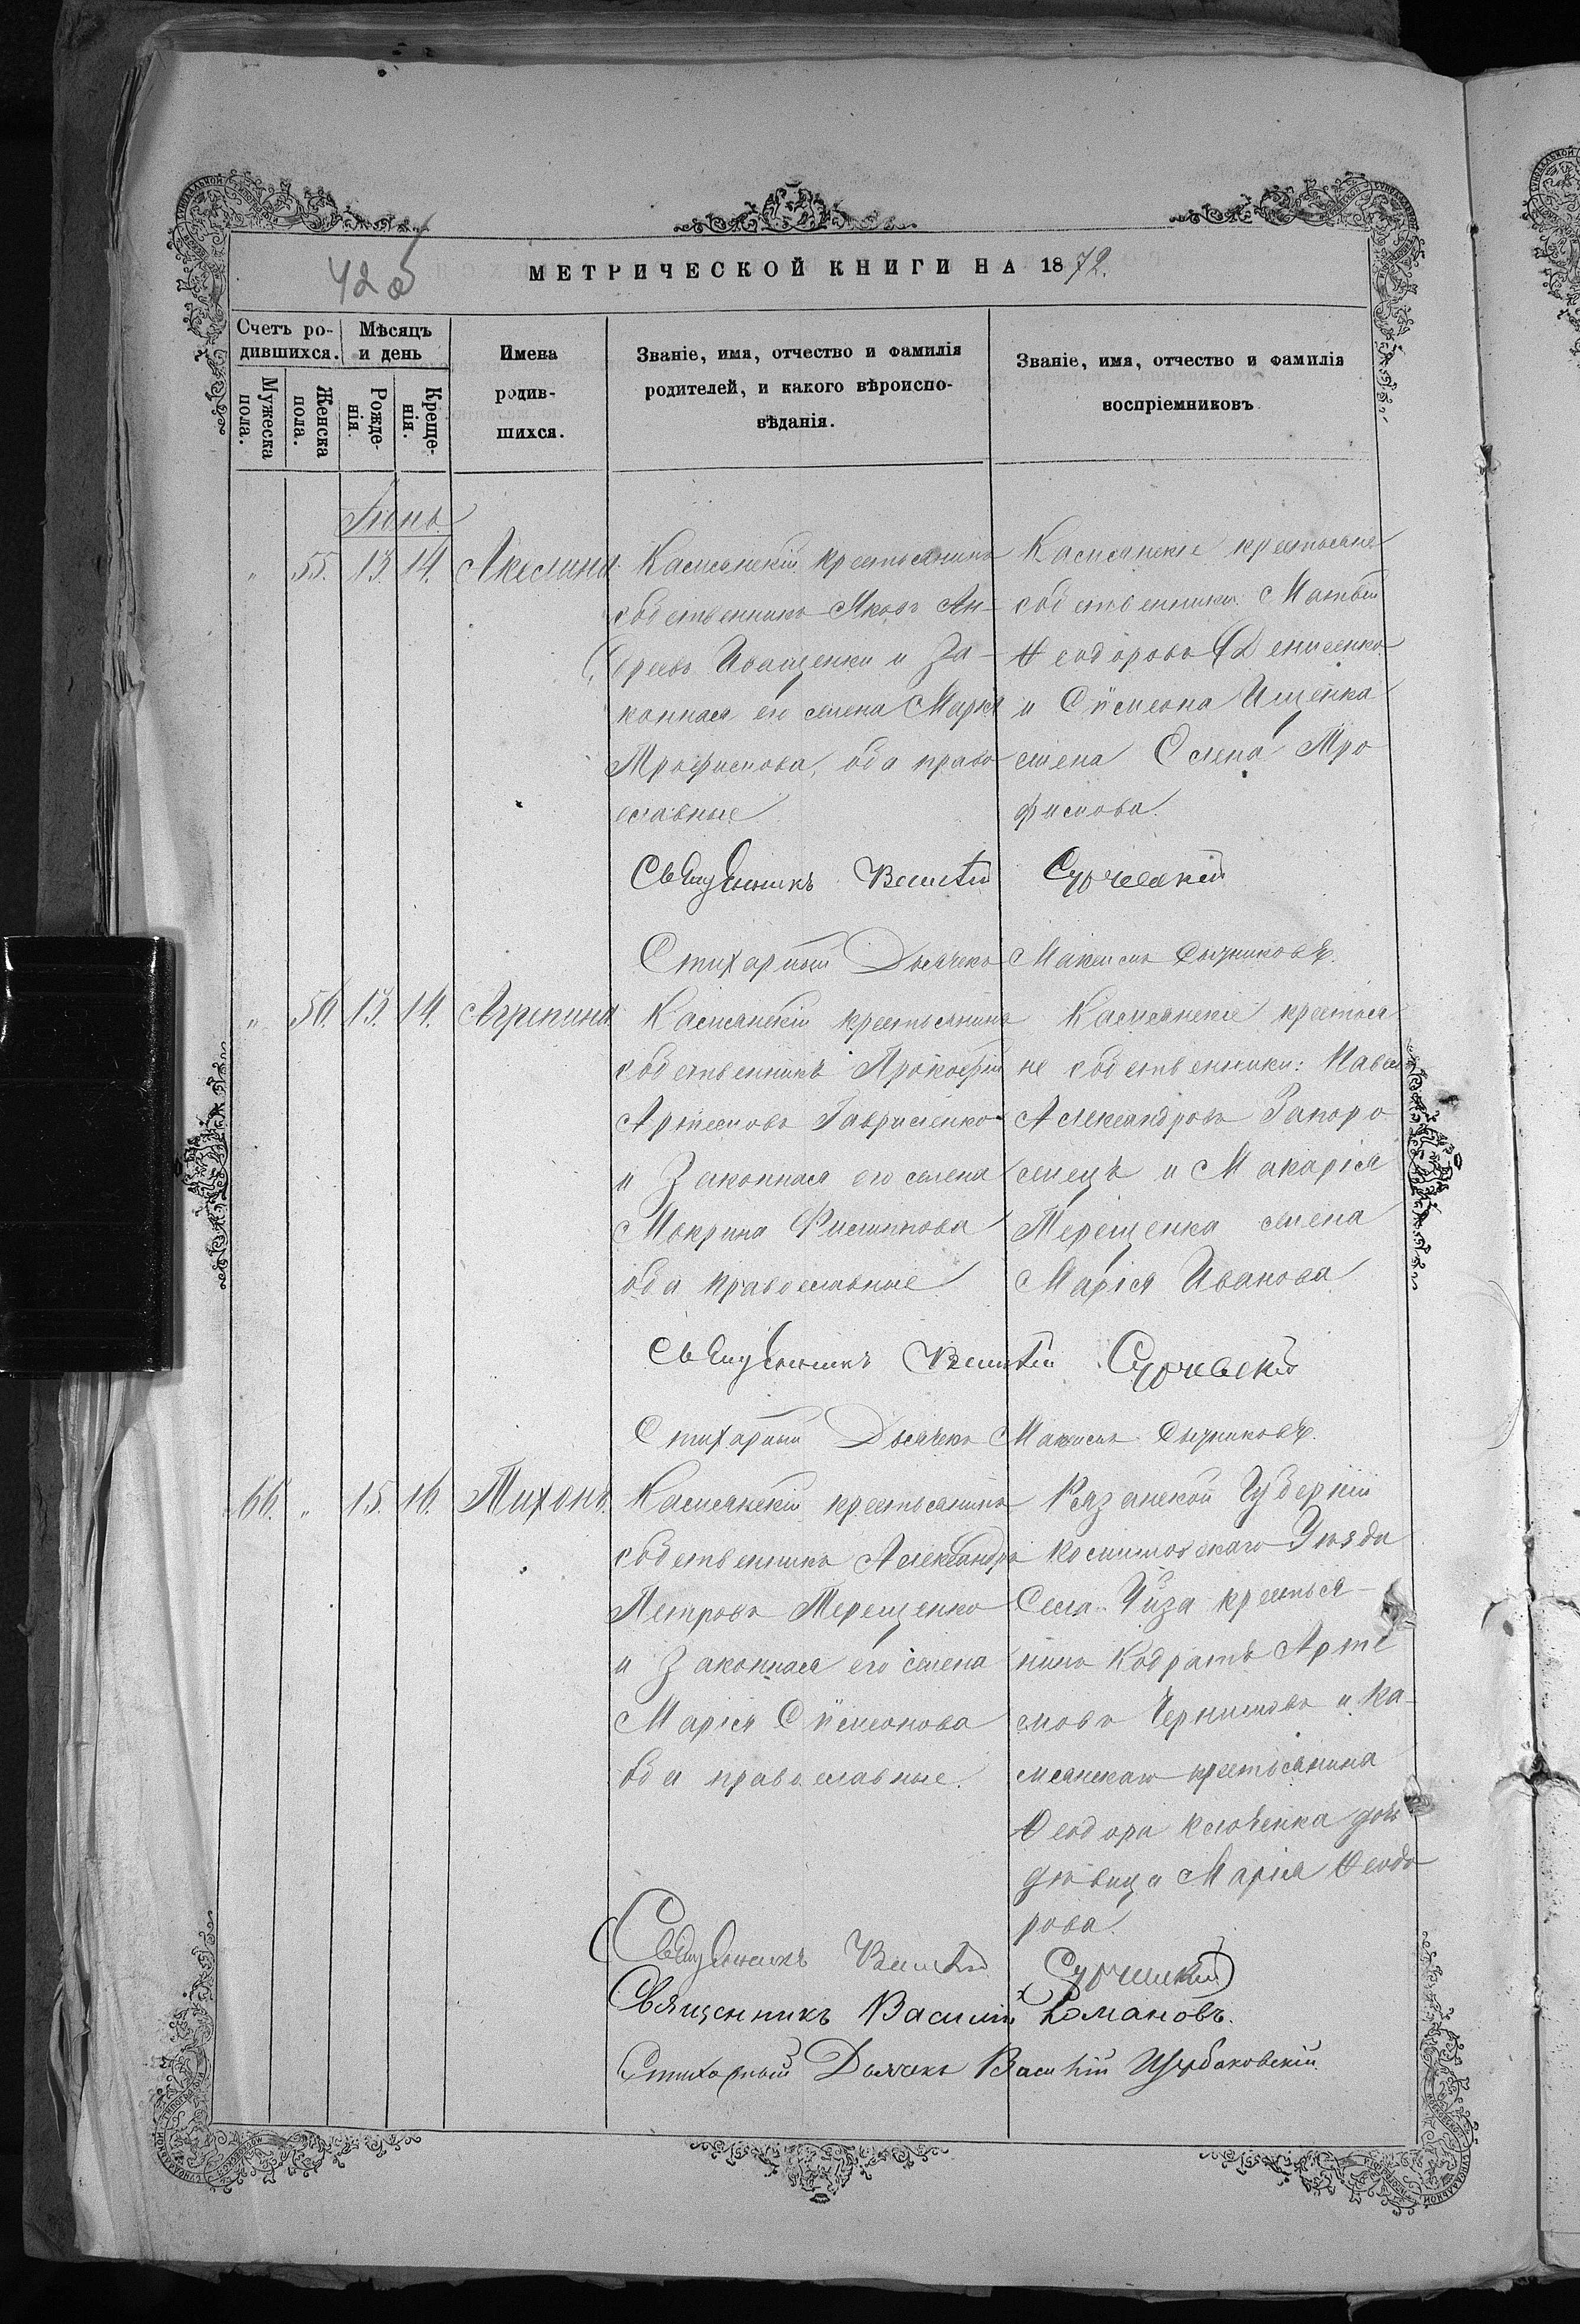 42 об
МЕТРИЧЕСКОЙ КНИГИ НА 1872.
Счетъ ро-
дившихся.
Мужеска
пола.
Женска
пола.
Мѣсяцъ
и день
Рожде-
нія.
Креще-
нія.
Имена
родив-
шихся.
Званіе, имя, отчество и фамилія
родителей, и какого вѣроиспо-
вѣданія.
Званіе, имя, отчество и фамилія
воспріемниковъ
Іюнь
" 55. 13. 14. Акилина
Камянскій крестьянинъ
собственникъ Яковъ Ан-
дреевъ Иващенко и за-
конная его жена Марія
Трофимова, оба право
славные
Камянскіе крестьяне
собственники: Матвѣй
Ѳеодоровъ Денисенко
и Сѵмеона Ищенка
жена Елена Тро
фимова.
Священникъ
Стихарный Дьячекъ Максимъ
" 56. 13. 14. Агрипина
Камянскій крестьянинъ
собственникъ Прокофій
Артемовъ Гавриленко
и законная его жена
Мокрина Филипова
оба православные
Камянскіе крестья
не собственники: Павелъ
Александровъ Запоро
жецъ и Макарія
Терещенка жена
Марія Иванова
Священникъ
Стихарный Дьячекъ Максимъ
66. " 15. 16. Тихонъ.
Камянскій крестьянинъ
собственникъ Александръ
Петровъ Терещенко
и законная его жена
Марія Сѵмеонова
оба православные.
Рязанской Губерніи
Уѣзда
Села крестья-
нинъ Кодратъ Арте
мовъ и Ка-
мянскаго крестьянина
Ѳеодора дочь
дѣвица Марія Ѳеодо
рова.
Священникъ
Священникъ Василій Романовъ.
Стихарный Дьячекъ Василій